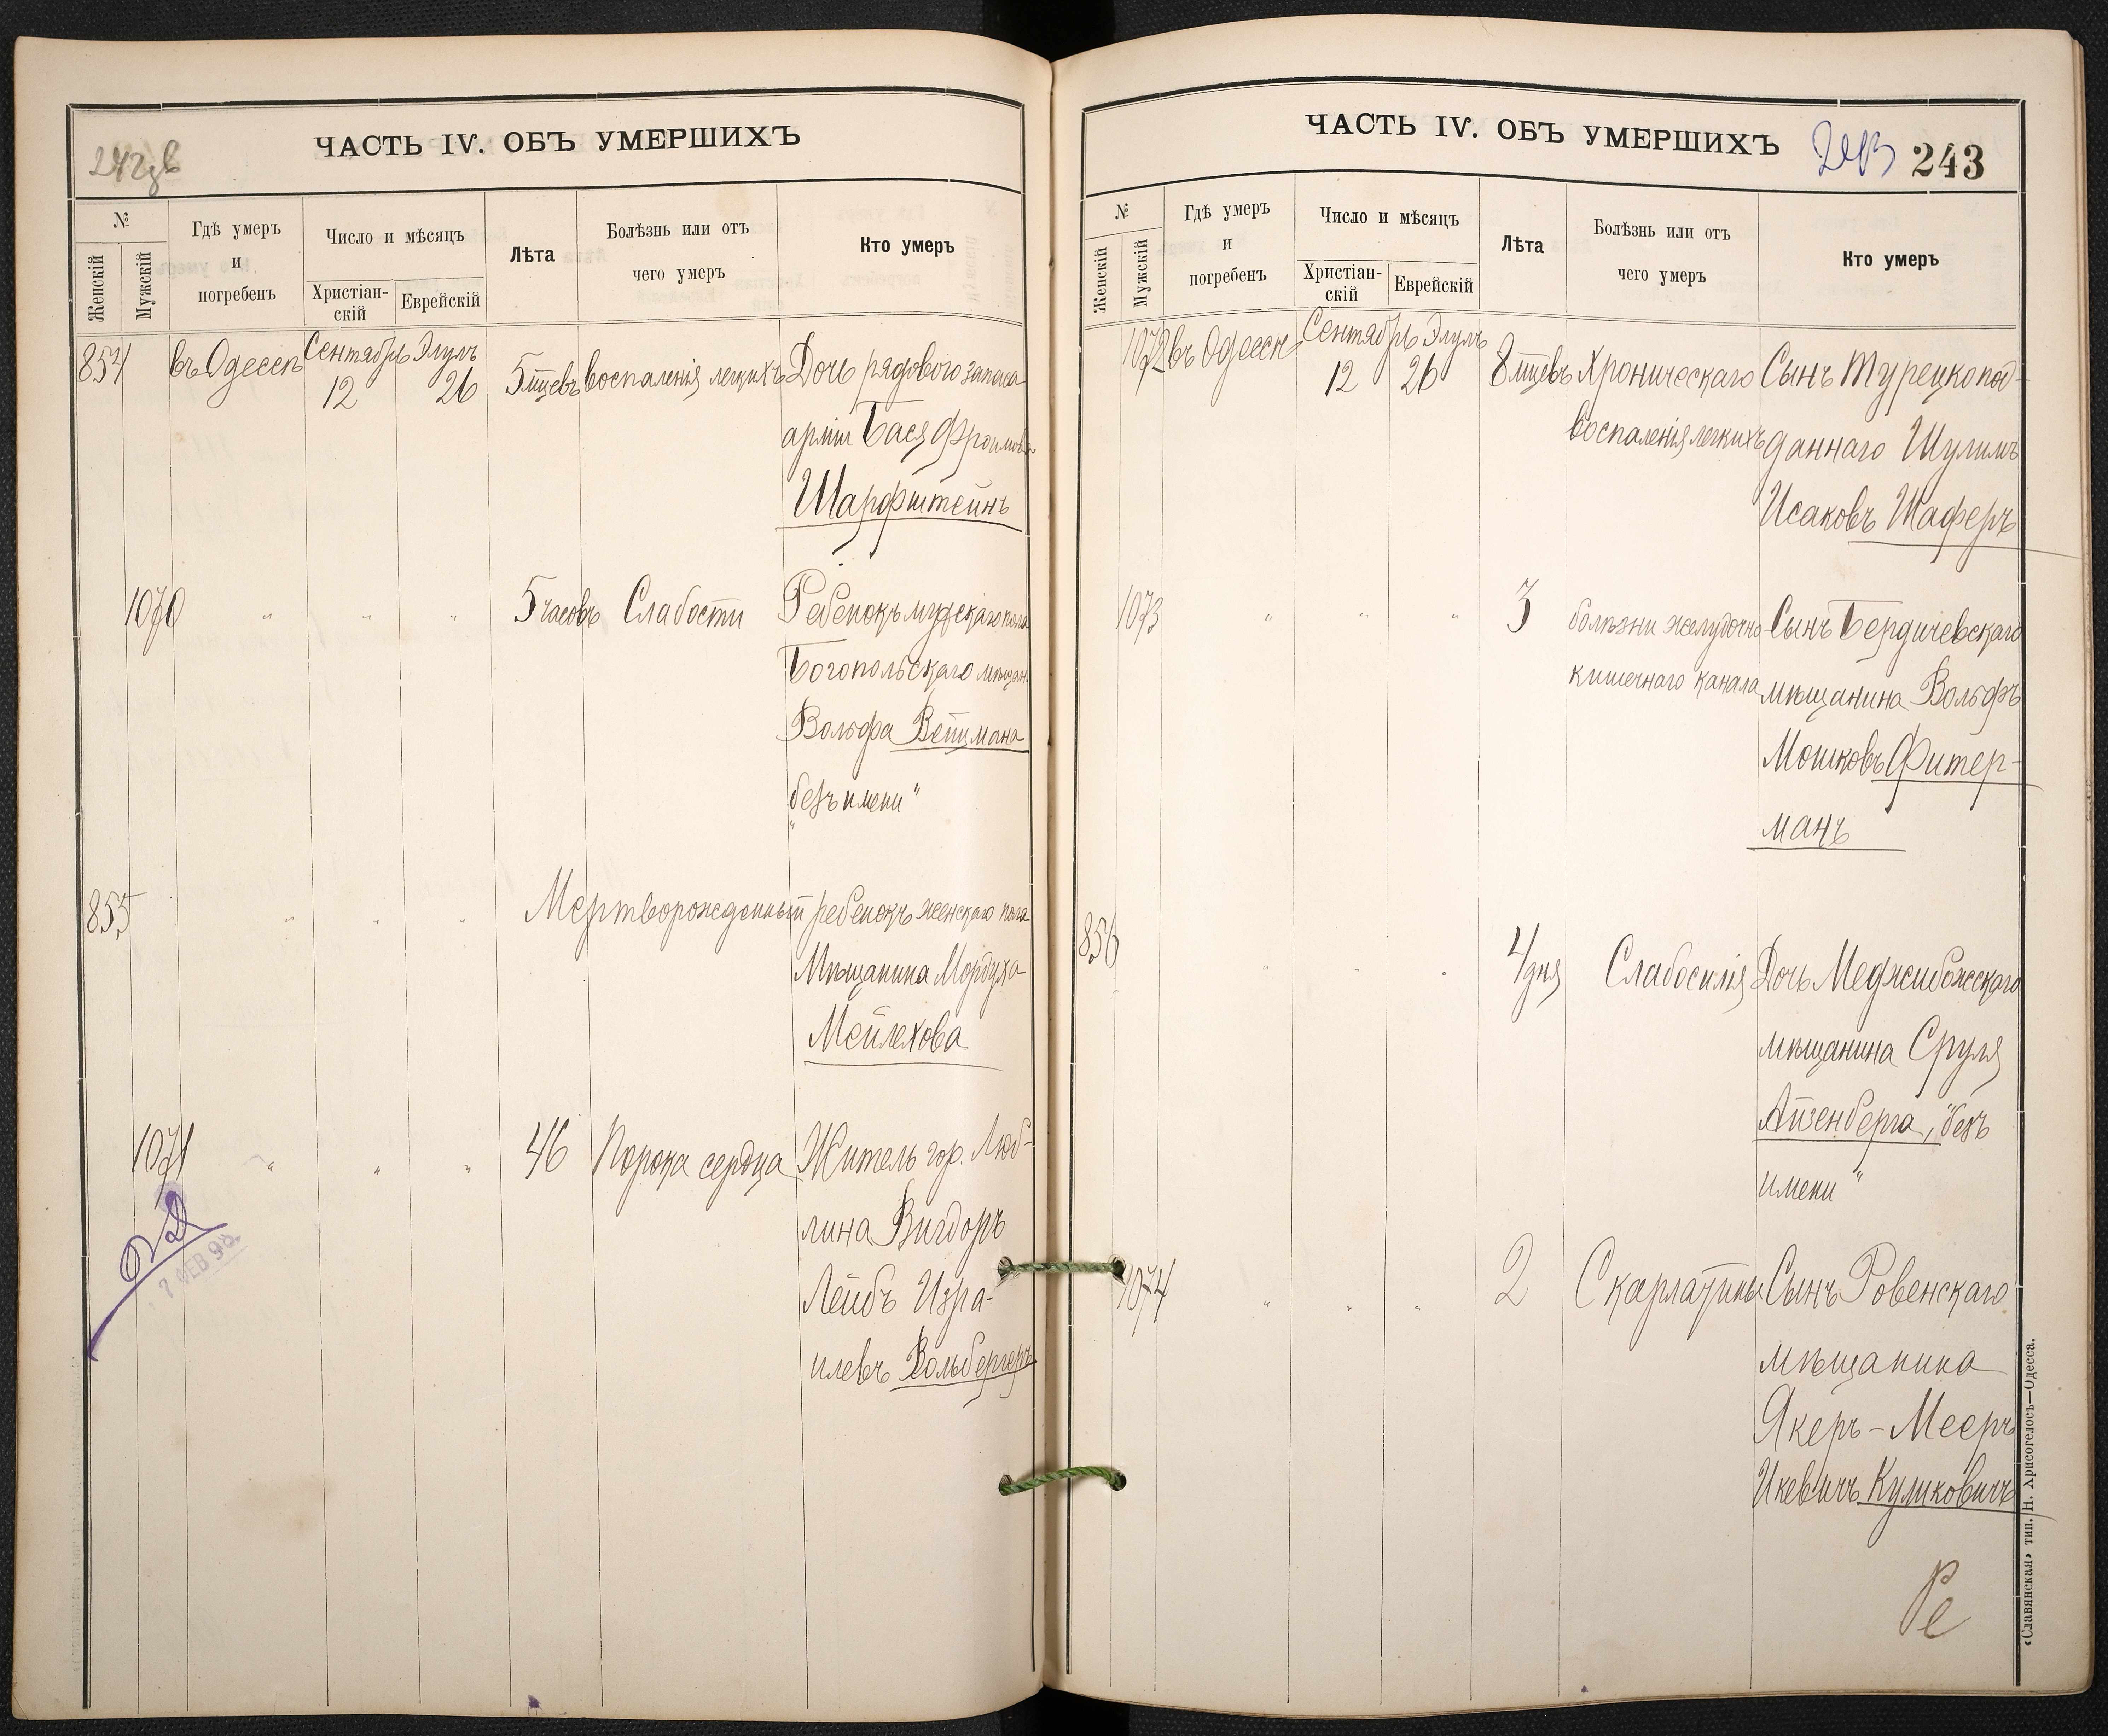 242 об
ЧАСТЬ IV. ОБЪ УМЕРШИХЪ
№
Женскій
Мужскій
Гдѣ умеръ
и
погребенъ
Число и мѣсяцъ
Христіан-
скій
Еврейскій
Лѣта
Болѣзнь или отъ
чего умеръ
Кто умеръ
854 въ Одессѣ Сентябрь 12 Элулъ 26 5 мцевъ воспаленія легкихъ Дочь рядового запаса
арміи Бася Фроимова
Шарфштейнъ
1070 " " " 5 часовъ Слабости Ребенокъ мужскаго пола
Богопольскаго мѣщан.
Вольфа Вейцмана
„безъ имени"
855 " " " Мертворожденный ребенокъ женскаго пола
Мѣщанина Мордуха
Мейлехова
1071 " " " 46 Порока сердца Житель гор. Люб-
лина Вигдоръ
Лейбъ Изра-
илевъ Вольбергеръ
7 ФЕВ 98
ЧАСТЬ IV. ОБЪ УМЕРШИХЪ
243
№
Женскій
Мужскій
Гдѣ умеръ
и
погребенъ
Число и мѣсяцъ
Христіан-
скій
Еврейскій
Лѣта
Болѣзнь или отъ
чего умеръ
Кто умеръ
1072 въ Одессѣ Сентябрь 12 Элулъ 26 8 мцевъ Хроническаго Сынъ Турецкопод-
воспаленія легкихъ даннаго Шулимъ
Исаковъ Шаферъ
1073 " " " 3 болѣзни желудочно- Сынъ Бердичевскаго
кишечнаго канала мѣщанина Вольфъ
Мошковъ Фитер-
манъ
856 " " " 4 дня Слабосилія Дочь Меджибожскаго
мѣщанина Сруля
Айзенберга, „безъ
имени"
1074 " " " 2 Скарлатины Сынъ Ровенскаго
мѣщанина
Якеръ-Мееръ
Икевичъ Куликовичъ
«Славянская» тип. Н. Хрисогелосъ—Одесса.